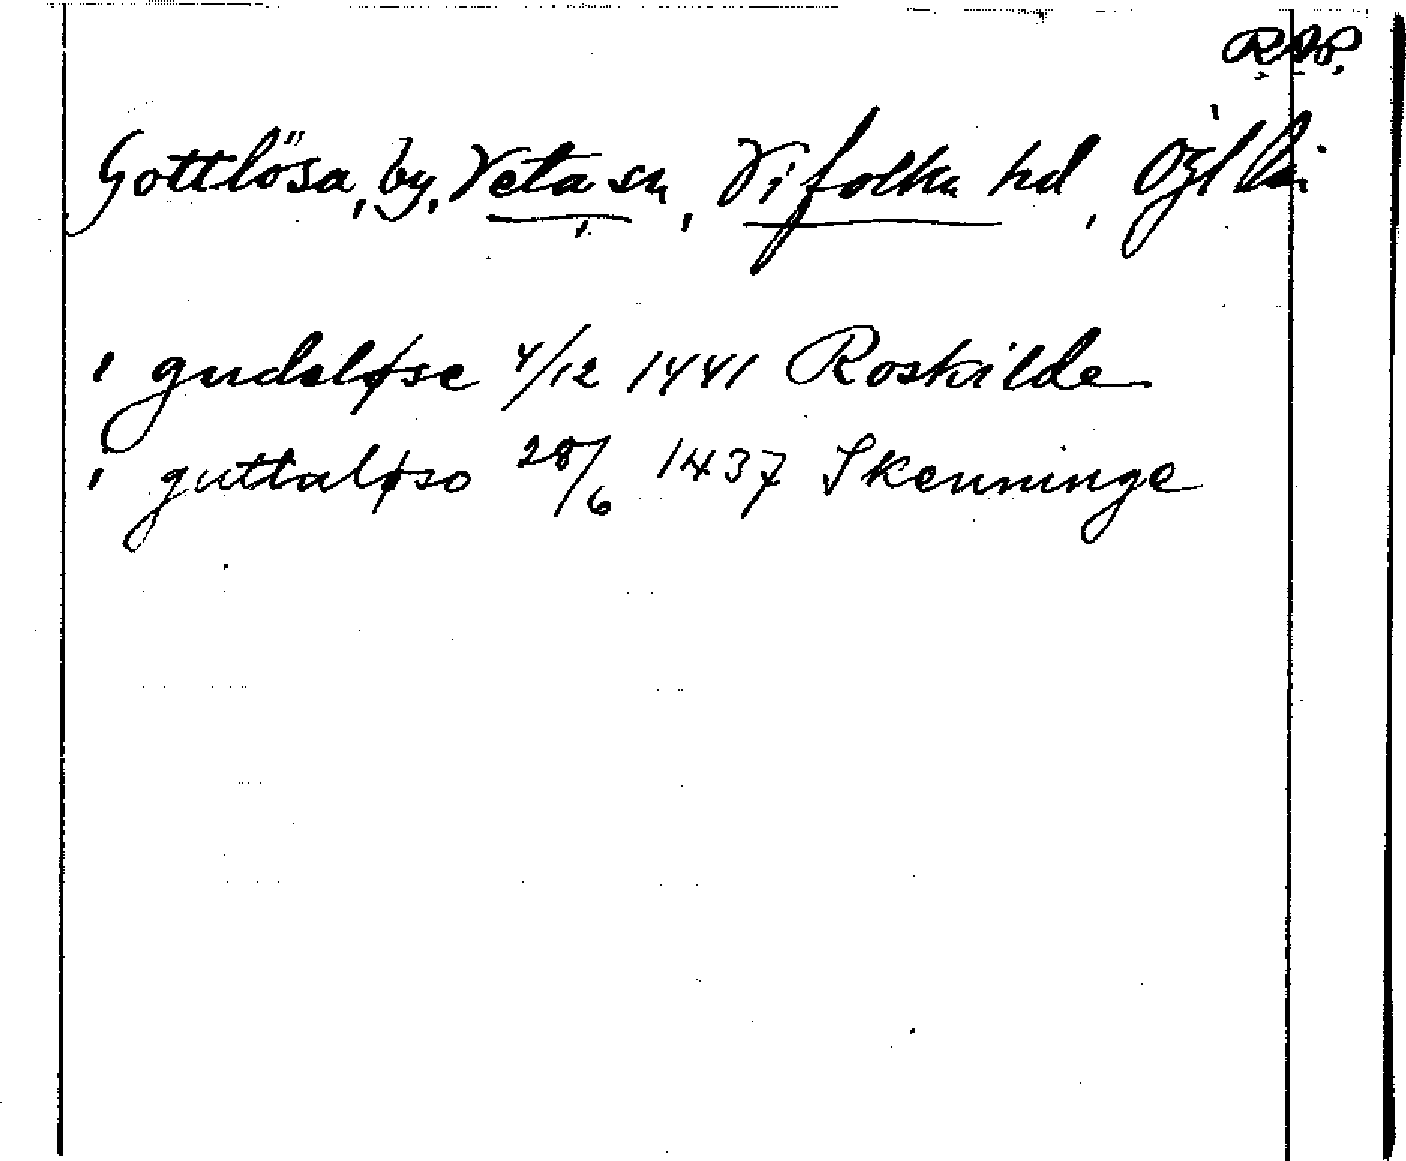 R.A.P.
Gottlösa, by, Veta sn, Vifolka hd, Ögl län
i gudeløse 4/12 1441 Roskilde
i guttaløso 28/6 1437 Skenninge